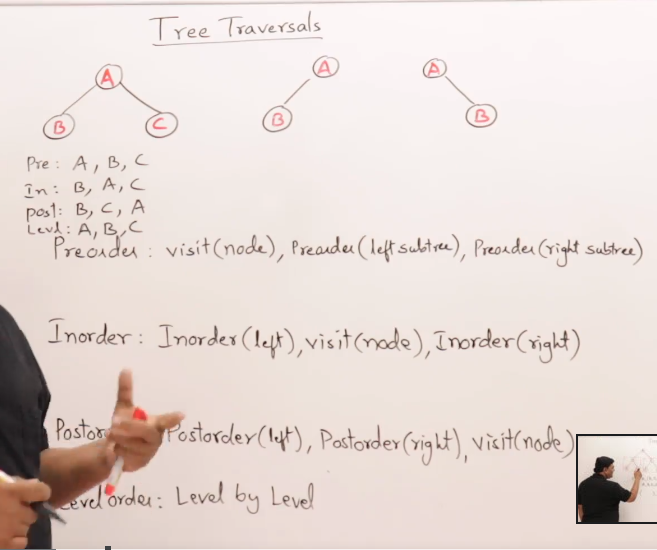 Tree Traversals
A
B
C
A
B
A
B
Pre: A, B, C
In: B, A, C
post: B, C, A
Level: A, B, C
Preorder: visit(node), Preorder(left subtree), Preorder(right subtree)
Inorder: Inorder(left), visit(node), Inorder(right)
Postorder(left), Postorder(right), visit(node)
Level order: Level by Level